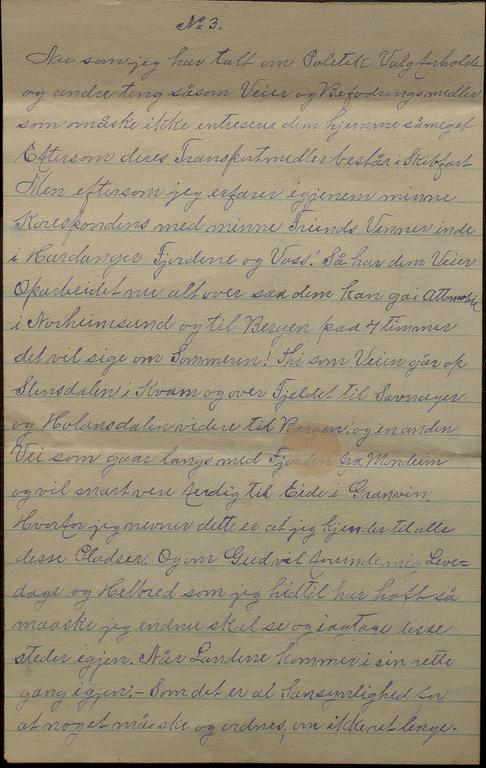 No 3.
Nu som jeg har talt om Politik Valgforholde
og andre ting såsom Veier og Befodringsmedler
som måske ikke entreserer dem hjemme såmeget
Eftersom deres Transportmedler består i Skibfart
Men eftersom jeg erfarer igjenem minne
Korespondens med minne Friends Venner inde
i Hardanger Fjordene og Voss! Så har dem Veier
Oparbeidet nu alt over saa dem kan ga i
i Norheimsund og til Bergen paa 4 timmer
det vil sige om Sommeren! Thi som Veien går op
Stensdalen i Kvam og over Fjeldet til Savnager
og Holansdalen videre til Bergen. og en anden
Vei som gaar langs med Fjorden fra Mondeim
og vil snart vere ferdig til Eide i Granvin.
Hvorfor jeg nevner dette er at jeg kjender til alle
disse Pladser. Og om Gud vil forunde mig Leve=
dage og Helbred som jeg hidtil har haft så
maaske jeg endnu skal se og iagtage disse
steder igjen. Når Landene kommer i sin rette
gang igjen.- Som det er al Sansynlighed for
at noget måske og ordnes, om ikke ret lenge.